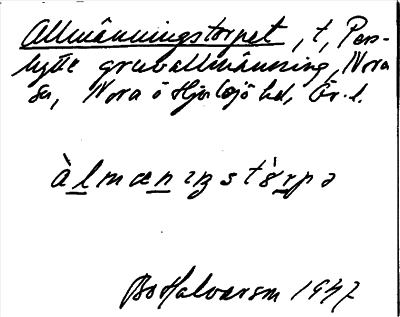 Allmänningstorpet, t, Pers-
hytte gruvallmänning, Nora
sn, Nora o Hjulsjö hd, Ör. l.
àlmænıŋstòrpə
Bo Halvarsm 1947